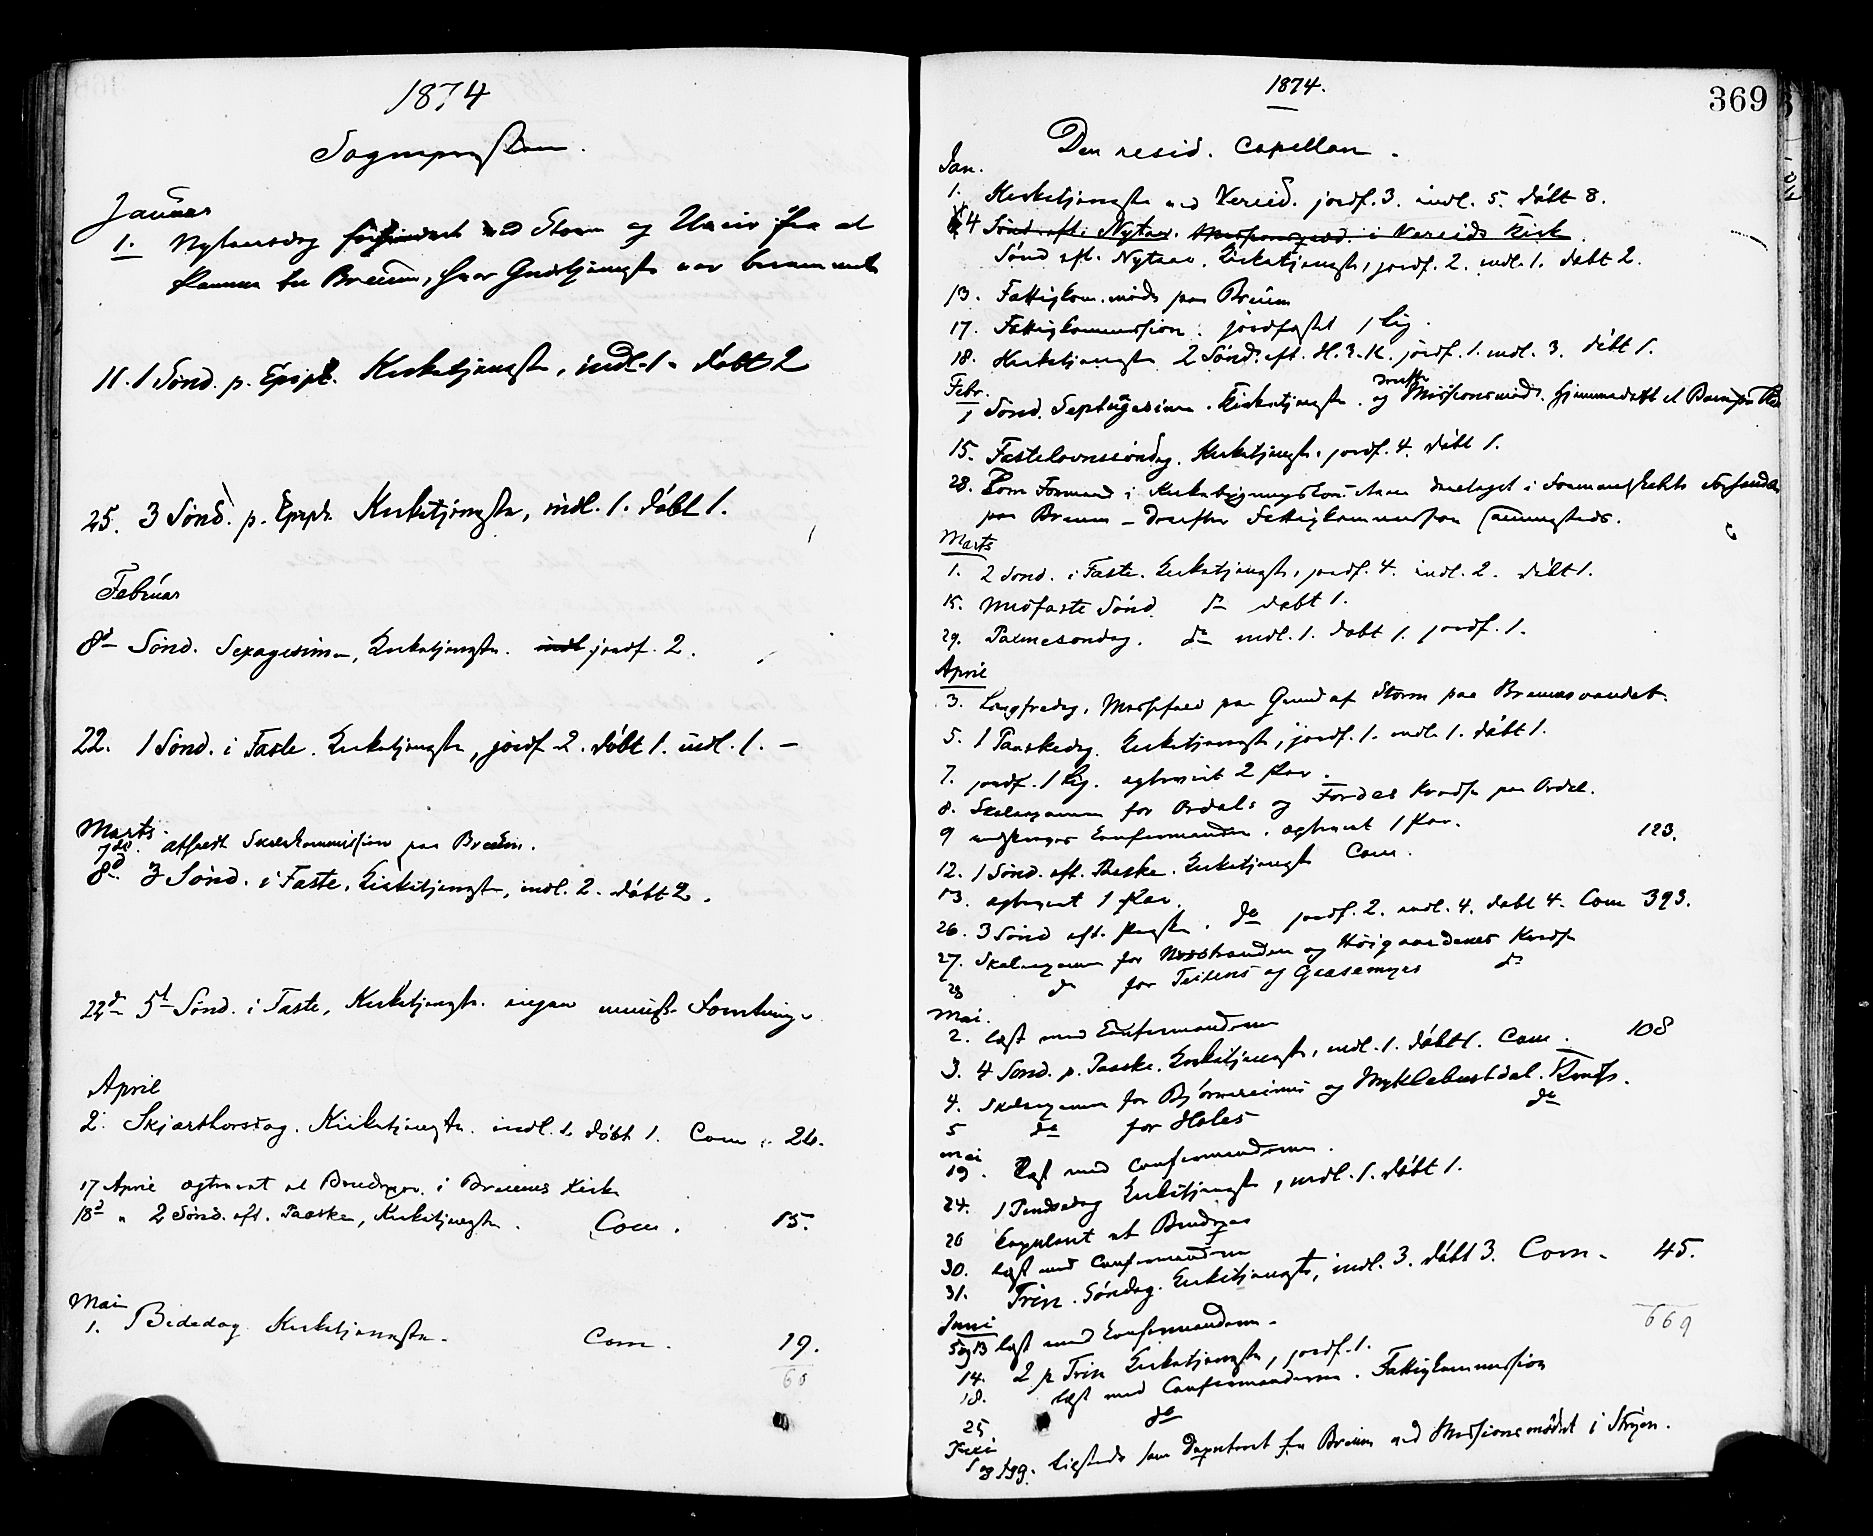 1874
Sognepresten.
Januar
1. Nytaarsdag forhindret ved Storm og Uveir fra at
komme til Breum, hvor Gudstjeneste var berammet
11. 1 Sønd. p. Epiph. Kirketjeneste, indl. 1. døbt 2
25. 3 Sønd. p. Epiph. Kirketjeneste, indl. 1. døbt 1.
Februar
8d Sønd. Sexagesima, Kirketjeneste. indl jordf. 2.
22. 1 Sønd. i Faste. Kirketjeneste, jordf. 2. døbt 1. indl. 1. –
Marts.
7de. afholdt Skolekommission paa Breum.
8d. 3 Sønd. i Faste, Kirketjeneste, indl. 2. døbt 2.
22d 5t Sønd. i Faste, Kirketjeneste. ingen
April
2. Skjærthorsdag. Kirketjeneste. indl. 1. døbt 1. Com. 26.
17 April ægteviet et Brudepar i Breums Kirke
18d " 2 Sønd. eft. Paaske, Kirketjeneste. Com. 15.
Mai
1. Bededag Kirketjeneste. Com. 19.
60
1874.
369
Den resid. Capellan.
Jan.
1. Kirketjeneste ved Vereid. jordf. 3. indl. 5. døbt 8.
4 Sønd. eft. Nytaar. Messefald i Vereids Kirke
Sønd. eft. Nytaar. Kirketjeneste, jordf. 2. indl. 1. døbt 2.
13. Fattigkom. møde paa Breum
17. Fattigkommission. jordfæstet 1 Lig.
18. Kirketjeneste 2 Sønd. eft. H. 3. K. jordf. 1. indl. 3. døbt 1.
Febr.
1 Sønd. Septuagesima. Kirketjeneste. og derefter Missionsmøde. hjemmedøbt et Barn
15. Fastelavnssøndag. Kirketjeneste. jordf. 4. døbt 1.
28. Som Formand i Kirkebygningskom. deeltaget i Formandskabets
paa Breum – derefter Fattigkommission sammesteds.
Marts
1. 2 Sønd. i Faste. Kirketjeneste, jordf. 4. indl. 2. døbt 1.
15. Midfaste Sønd. do døbt 1.
29. Palmesøndag. do indl. 1. døbt 1. jordf. 1.
April
3. Langfredag. Messefald paa Grund af Storm paa Breumsvandet.
5. 1 Paaskedag Kirketjeneste, jordf. 1. indl. 1. døbt 1.
7. jordf. 1 Lig. ægteviet 2 Par.
8. Skoleexamen for Ordals og Fordes Kreds paa Ordal.
9 Confirmander. ægteviet 1 Par. 123.
12. 1 Sønd. eft. Paaske. Kirketjeneste Com.
13. ægteviet 1 Par.
26. 3 Sønd. eft. Paaske. do jordf. 2. indl. 4. døbt 4. Com 393.
27. Skoleexamen for Nordstranden og Höigaardenes Kreds
28 do for Teitens og Gaasemyrs do
Mai.
2. læst med Confirmanderne 108
3. 4 Sønd. p. Paaske. Kirketjeneste, indl. 1. døbt 1. Com.
4. Skoleexamen for Bjørnereims og Myklebustdal. Kreds.
5 do for Holes do
Mai
19. læst med Confirmanderne.
24. 1 Pindsedag Kirketjeneste, indl. 1. døbt 1.
26 Copuleret et Brudepar
30. læst med Confirmanderne
31. Trin. Søndag. Kirketjeneste, indl. 3. døbt 3. Com. 45.
669
Juni
5 og 13 læst med Confirmanderne.
14. 2 p Trin Kirketjeneste, jordf. 1.
18. læst med Confirmanderne. Fattigkommission
25 do
Juli
som Deputeret fra Breum ved Missionsmødet i Stryn.